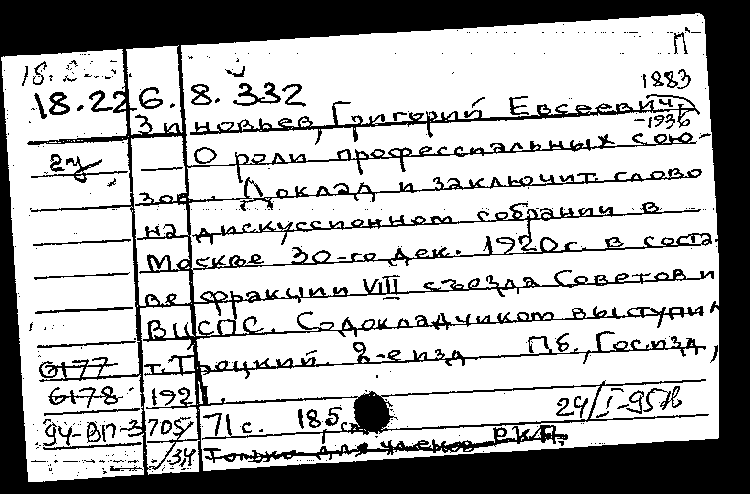 П
18.226.8.332
1883
Зиновьев, Григорий Евсеевич,
-1936
О роли профессиальных сою-
зов. Доклад и заключит. слово
на дискуссионном собрании в
Москве 30-го дек. 1920 г. в соста-
ве фракции VIII съезда Советов и
ВЦСПС. Содокладчиком выступил
6177 т. Троцкий. 2-е изд Пб., Госизд,
6178 1921.
94-ВП-3 705/ 71 с. 18,5 см 24/I-95
/34 Только для членов Р.К.П.